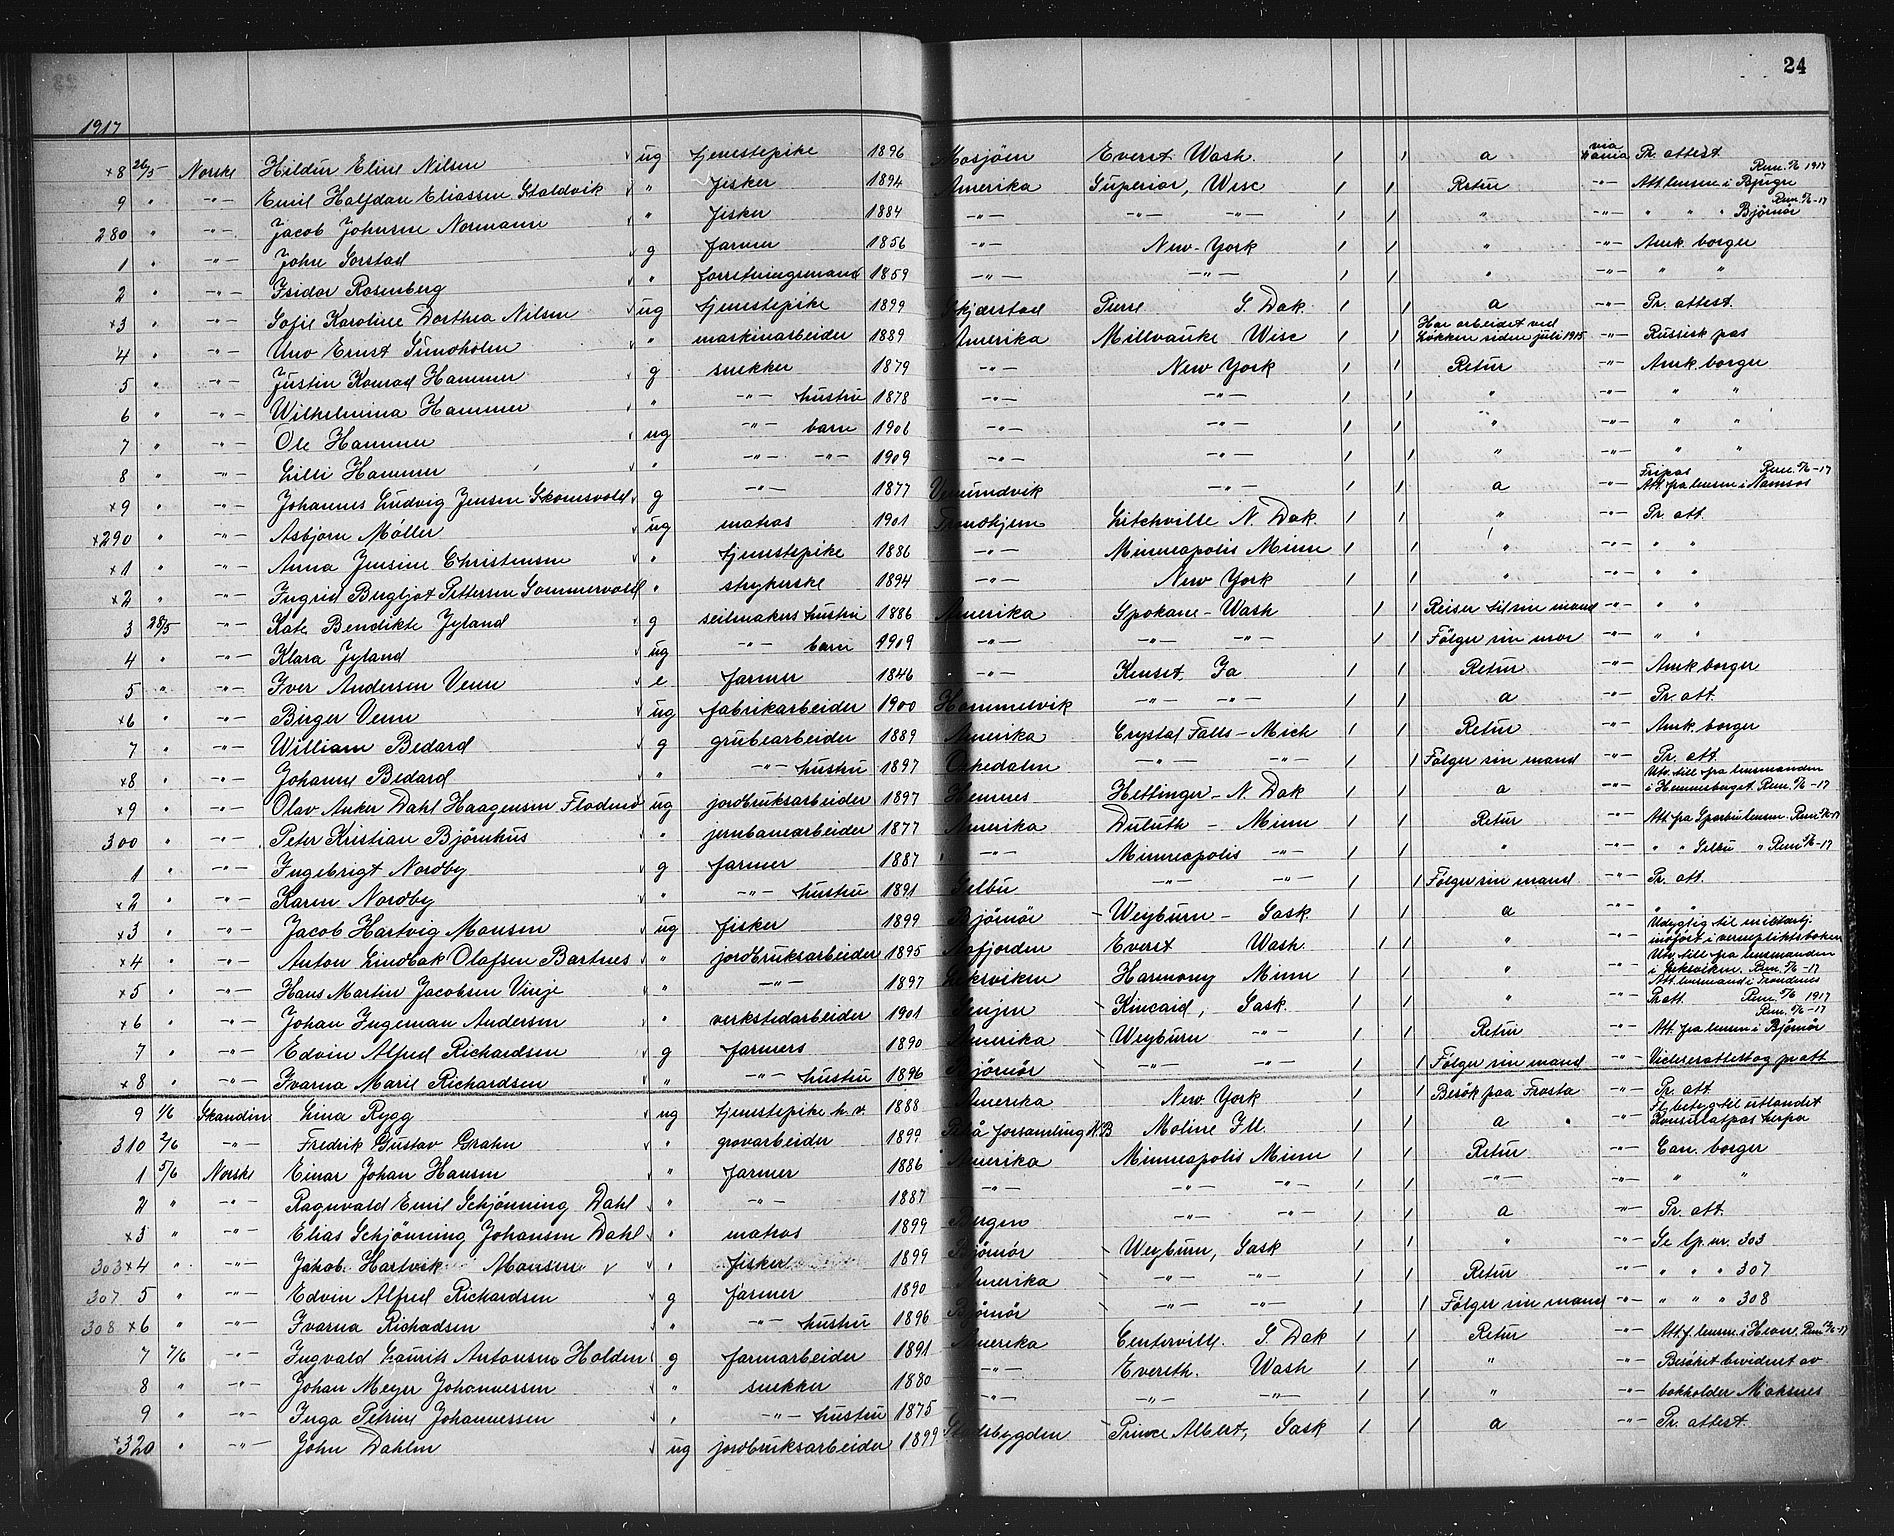 24
1917
×8 26/5 Norske Hildur Eline Nilsen ug tjenestepike 1896 Mosjöen Everet Wash. / / a via Pr. attest.
9 " -"- Emil Halfdan Eliassen Staldvik " fisker 1894 Amerika Superior, Wisc / / Retur -"- Att. lensm. i Bjugn 1917
280 " -"- Jacob Johnsen Normann " fisker 1884 -"- -"- -"- / / " -"- " " " Björnör
1 " -"- John Sorstad g farmer 1856 -"- New-York / / " -"- Amk. borger
2 " -"- Isidor Rosenberg " forretningsmand 1859 -"- -"- / / " -"- " "
×3 " -"- Sofie Karoline Dorthea Nilsen ug tjenestepike 1899 Skjerstad Pierre S. Dak. / / a -"- Pr. attest.
4 " -"- Uno Ernst Sundholm " maskinarbeider 1889 Amerika Millvauke Wisc / / Har arbeidet ved Løkken siden juli 1915 -"- Russisk pas
5 " -"- Justin Konrad Hammer g snekker 1879 -"- New York / / Retur -"- Amk. borger
6 " -"- Wilhelmina Hammer " -"- hustru 1878 -"- -"- / / " -"- " "
7 " -"- Ole Hammer ug -"- barn 1906 -"- -"- / / " -"- " "
8 " -"- Lilli Hammer " -"- -"- 1909 -"- -"- / / " -"- " "
×9 " -"- Johannes Ludvig Jensen Skomsvold g -"- 1877 Vemundvik -"- / / a -"- Fripas Att. fra lensm. i Namsos
×290 " -"- Asbjorn Möller ug matros 1901 Trondhjem Litchville N. Dak. / / " -"- Pr. att.
×1 " -"- Anna Jensine Christensen " tjenestepike 1886 -"- Minneapolis Minn / / " -"- " "
×2 " -"- Ingrid Bergljot Pettersen Sommervold " strykerske 1894 -"- New York / / " -"- " "
3 28/5 -"- Kate Bendikte Jyland g seilmakers hustru 1886 Amerika Spokane - Wash / / Reiser til sin mand -"- " "
4 " -"- Klara Jyland ug -"- barn 1909 -"- -"- -"- / / Følger sin mor -"- " "
5 " -"- Iver Andersen Venn e farmer 1846 -"- Kenset. Ia / / Retur -"- Amk borger
×6 " -"- Birger Venn ug fabrikarbeider 1900 Hommelvik -"- -"- / / a -"- Pr. att.
7 " -"- William Bedard g grubearbeider 1889 Amerika Crystal Falls - Mich / / Retur -"- Amk. borger
×8 " -"- Johanne Bedard " -"- hustru 1897 Orkedalen -"- -"- / / Følger sin mand -"- Pr. att.
×9 " -"- Olav Anker Dahl Haagensen ug jordbruksarbeider 1897 Hemnes Hettinger - N. Dak / / a -"- Utv. till. fra lensmanden i Hemnesberget.
300 " -"- Peter Kristian Björnhus " jernbanearbeider 1877 Amerika Duluth - Minn / / Retur -"- Att. fra Sparbu lensm.
1 " -"- Ingebrigt Nordby g farmer 1887 -"- Minneapolis -"- / / " -"- " " Selbu "
×2 " -"- Karen Nordby " -"- hustru 1891 Selbu -"- -"- / / Følger sin mand -"- Pr. att.
×3 " -"- Jacob Hartvig Monsen ug fisker 1899 Björnör Weyburn - Sask. / / a -"- " "
×4 " -"- Anton Lindbak Olafsen Bartnes " jordbruksarbeider 1895 Aafjorden Everet Wash. / / " -"- Udygtig til militærtj. indført i vernepliktsboken
×5 " -"- Hans Martin Jacobsen " -"- 1897 Leksviken Harmony Minn / / " -"- Utv. till. fra lensmanden i Leksviken.
×6 " -"- Johan Ingeman Andersen " verkstedarbeider 1901 Senjen Kincaid, Sask. / / " -"- Att. lensmand i Trondenes Pr. att. 1917
7 " -"- Edvin Alfred Richardsen g farmers 1890 Amerika Weyburn -"- / / Retur -"- Att. fra lensm. i Björnör
×8 " -"- Ivarna Marie Richardsen " -"- hustru 1896 Björnör -"- -"- / / Følger sin mand -"- Vielsesattest og pr. att.
9 1/6 Skandin Lina Rygg ug tjenestepike h. v. 1888 Amerika New York / / Besök paa Frosta -"- Pr. att
310 2/6 -"- Fredrik Gustav Grahn " grovarbeider 1899 Piteå forsamling N.B Moline Ill / / a -"- Fl.betyg til utlandet Konsulatpas herfra
1 5/6 Norske Einar Johan Hansen " farmer 1886 Amerika Minneapolis Minn / / Retur -"- Can. borger
2 " -"- Ragnvald Emil Schjönning Dahl " -"- 1887 -"- -"- -"- / / -"- -"- " "
×3 " -"- Elias Schjönning Johansen Dahl " matros 1899 Bergen -"- -"- / / a -"- Pr. att.
303 ×4 " -"- Jakob Hartvik Monsen " fisker 1899 Björnör Weyburn, Sask / / " -"- Se lp. nr. 303
307 5 " -"- Edvin Alfred Richardsen g farmer 1890 Amerika -"- -"- / / Retur -"- " " " 307
308 ×6 " -"- Ivarna Richadsen " -"- hustru 1896 Björnör -"- -"- / / Følger sin mand -"- " " " 308
7 7/6 -"- Ingvald Laurits Antonsen Holden g farmarbeider 1891 Amerika Centerville. S. Dak / / Retur -"- Att. f. lensm. i Hevne.
8 " -"- Johan Meyer Johannessen " snekker 1880 -"- Evereth. Wash / / " -"- Besöket bevidnet av
9 " -"- Inga Petrine Johannessen " -"- hustru 1875 -"- -"- -"- / / " -"- bokholder Moksnes
×320 " -"- John Dahlen ug jordbruksarbeider 1899 Stadsbygden Prince Albert, Sask / / a -"- Pr. attest.